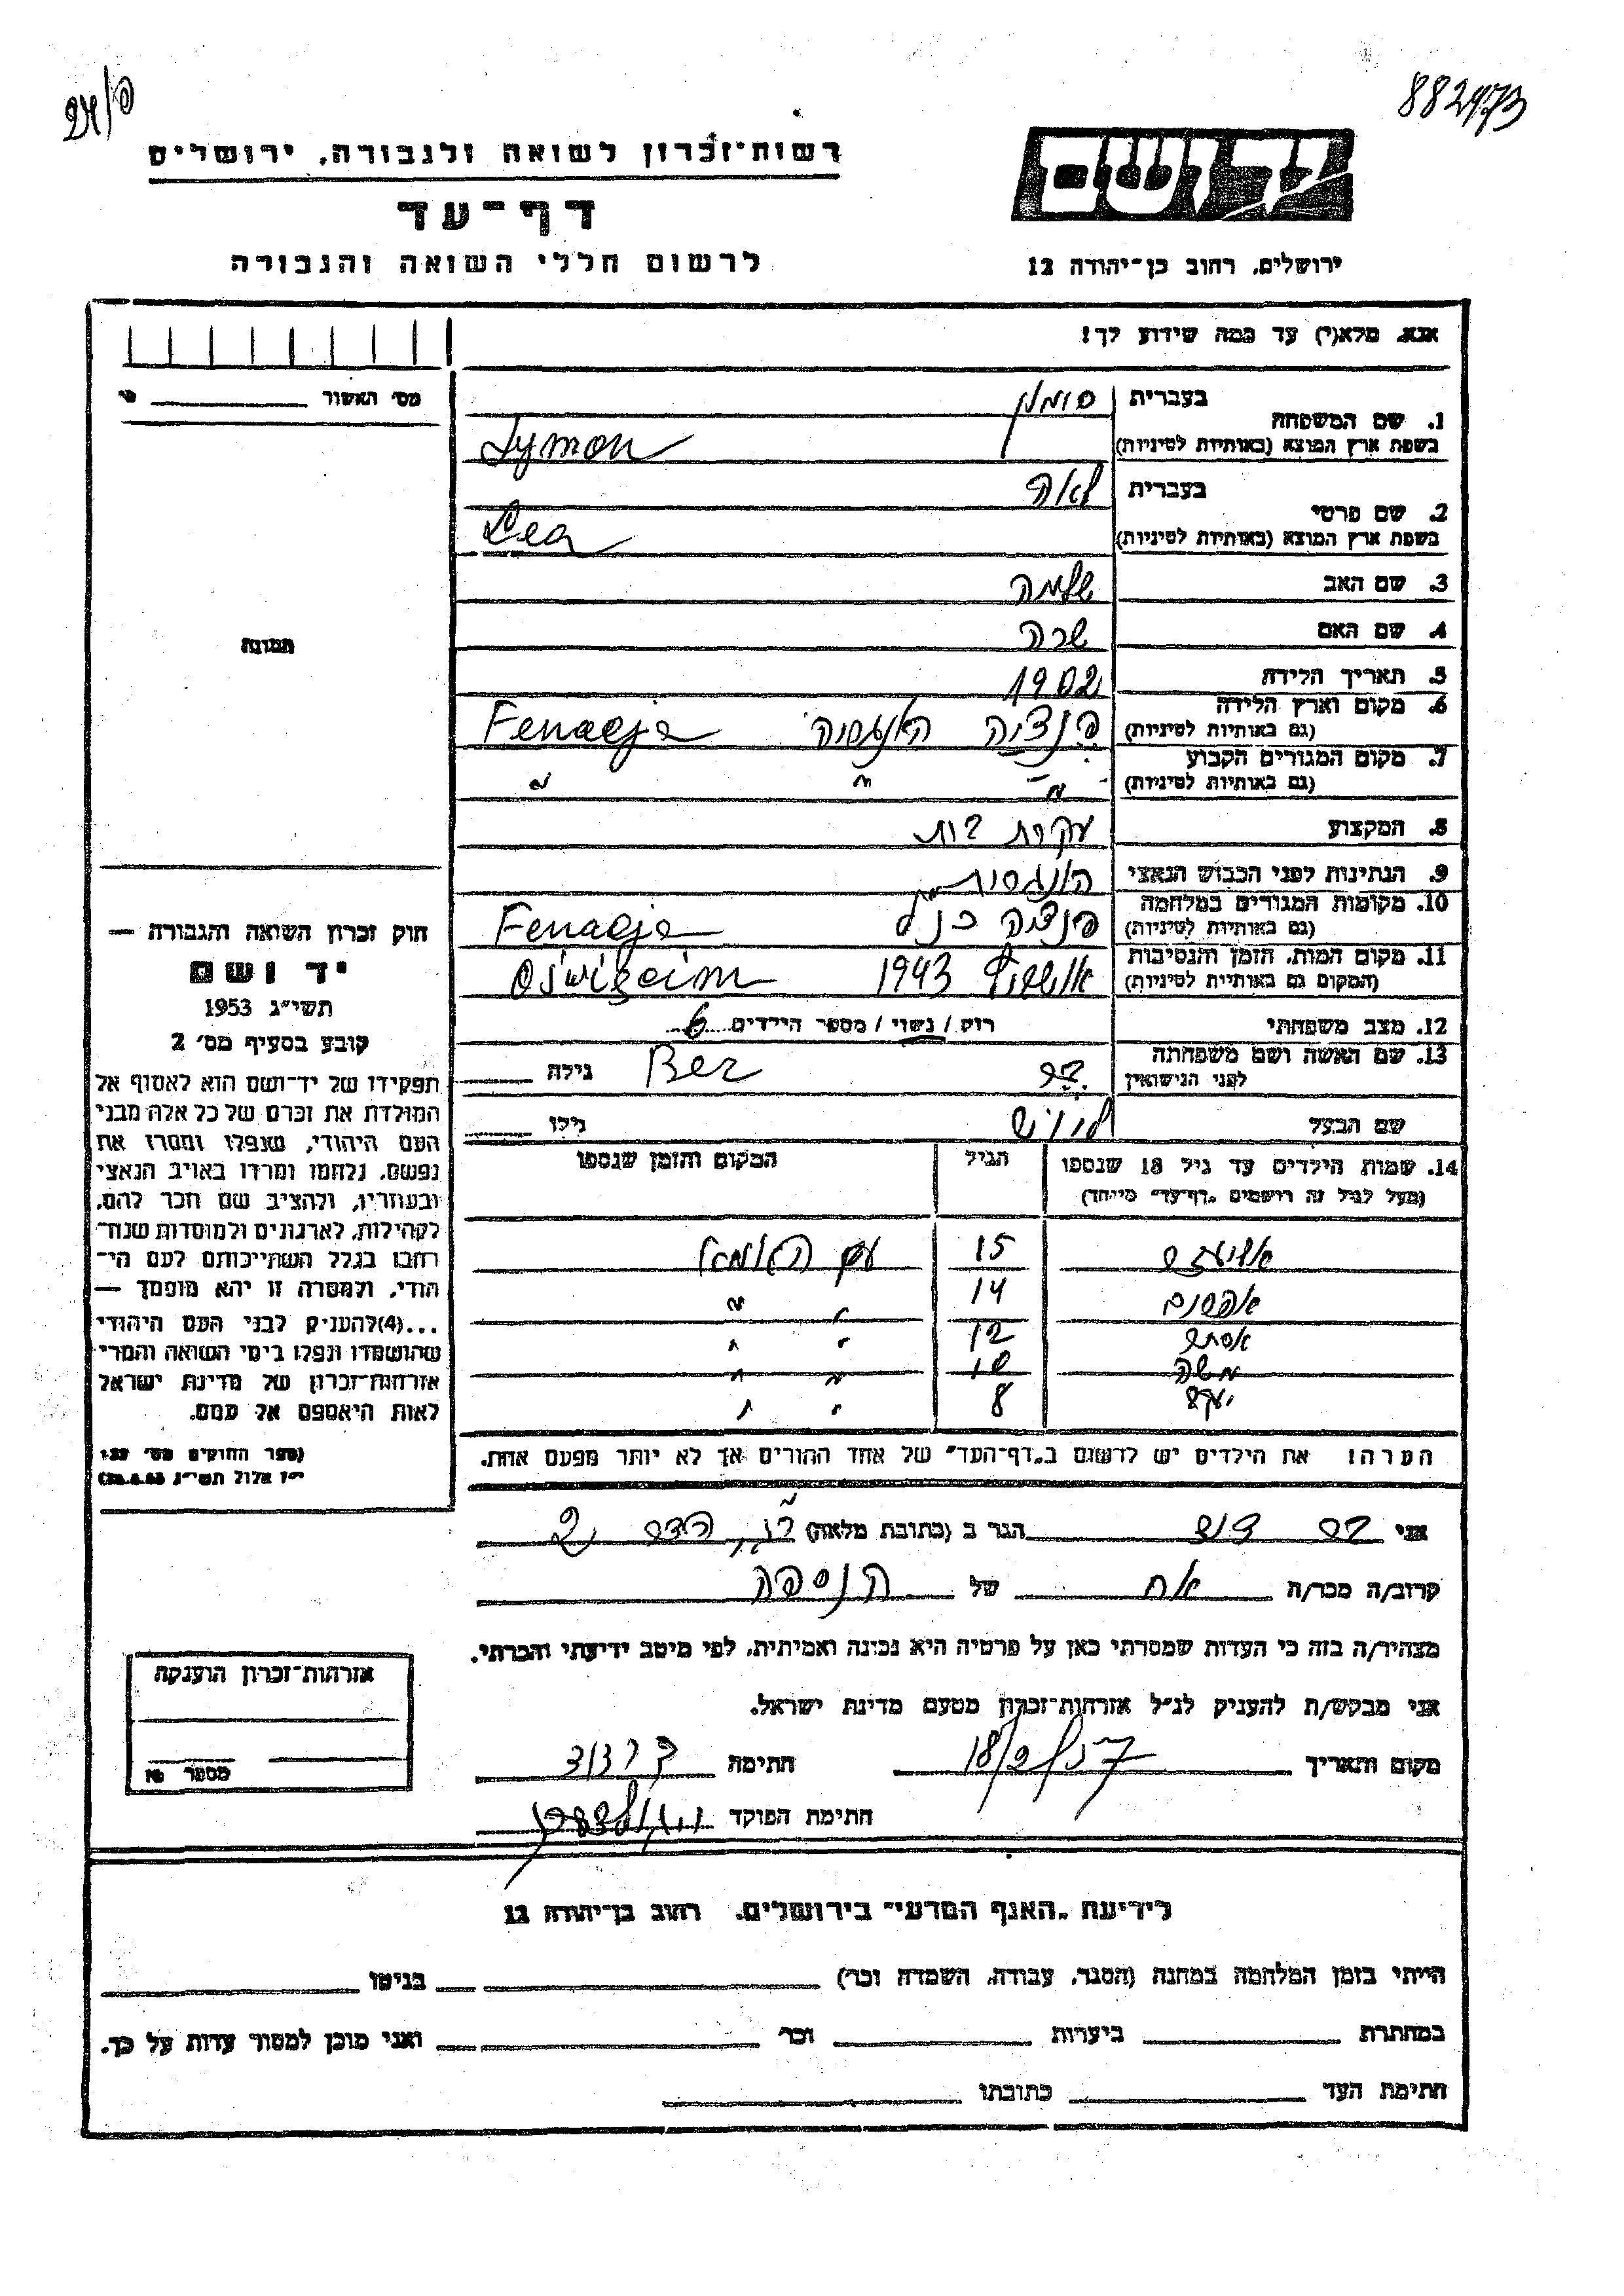 882473
רשות־זכרון לשואה ולגבורה, ירושלים
דף־עד
לרשום חללי השואה והגבורה
יד ושם
ירושלים, רחוב בן־יהודה 12
אנא, מלא(י) עד כמה שידוע לך!
מס׳ האשור
1. שם המשפחה
בעברית
סומלן
בשפת ארץ המוצא (באותיות לטיניות)
Symon
2. שם פרטי
בעברית
לאה
בשפת ארץ המוצא (באותיות לטיניות)
Lea
3. שם האב
שלמה
4. שם האם
שרה
5. תאריך הלידה
1902
6. מקום וארץ הלידה
(גם באותיות לטיניות)
פנציה
Fenaeja
7. מקום המגורים הקבוע
(גם באותיות לטיניות)
" " "
8. המקצוע
עקרת בית
9. הנתינות לפני הכבוש הנאצי
10. מקומות המגורים במלחמה
(גם באותיות לטיניות)
פנציה כנ"ל
Fenaeja
11. מקום המות, הזמן והנסיבות
(המקום גם באותיות לטיניות)
אושוויץ 1943
12. מצב משפחתי
רוק / נשוי / מספר הילדים 6
13. שם האשה ושם משפחתה
לפני הנישואין
בר
Ber
גילה
שם הבעל
גילו
14. שמות הילדים עד גיל 18 שנספו
(מעל לגיל זה רושמים „דף־עד״ מיוחד)
הגיל
המקום והזמן שנספו
15 עם האמא
אפרים 14 " "
אסתר 12 " "
משה 10 " "
יעקב 8 " "
הערה! את הילדים יש לרשום ב„דף־העד״ של אחד ההורים אך לא יותר מפעם אחת.
תמונה
חוק זכרון השואה והגבורה —
יד ושם
תשי״ג 1953
קובע בסעיף מס׳ 2
תפקידו של יד־ושם הוא לאסוף אל
המולדת את זכרם של כל אלה מבני
העם היהודי, שנפלו ומסרו את
נפשם, נלחמו ומרדו באויב הנאצי
ובעוזריו, ולהציב שם וזכר להם,
לקהילות, לארגונים ולמוסדות שנח־
רבו בגלל השתייכותם לעם הי־
הודי, ולמטרה זו יהא מוסמך —
...(4) להעניק לבני העם היהודי
שהושמדו ונפלו בימי השואה והמרי
אזרחות־זכרון של מדינת ישראל
לאות היאספם אל עמם.
(ספר החוקים מס׳ 132
י״ז אלול תשי״ג 28.8.53)
אני בר
הגר ב (כתובת מלאה)
קרוב/ה מכר/ה אח של הנספה
מצהיר/ה בזה כי העדות שמסרתי כאן על פרטיה היא נכונה ואמיתית, לפי מיטב ידיעתי והכרתי.
אני מבקש/ת להעניק לנ״ל אזרחות־זכרון מטעם מדינת ישראל.
מקום ותאריך
חתימה
חתימת הפוקד
אזרחות־זכרון הוענקה
מספר
לידיעת „האגף המדעי״ בירושלים, רחוב בן־יהודה 12
הייתי בזמן המלחמה במחנה (הסגר, עבודה, השמדה וכו׳)
בגיטו
במחתרת
ביערות
וכו׳
ואני מוכן למסור עדות על כך.
חתימת העד
כתובתו